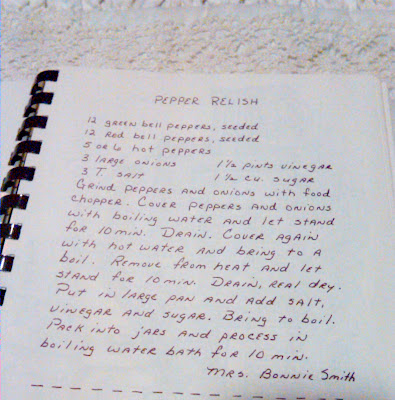 PEPPER RELISH
12 green bell peppers, seeded
12 Red bell peppers, seeded
5 or 6 hot peppers
3 large onions 1 1/2 pints vinegar
3 T. salt 1 1/2 cu. sugar
Grind peppers and onions with food
chopper. Cover peppers and onions
with boiling water and let stand
for 10 min. Drain. Cover again
with hot water and bring to a
boil. Remove from heat and let
stand for 10 min. Drain, real dry.
Put in large pan and add salt,
vinegar and sugar. Bring to boil.
Pack into jars and process in
boiling water bath for 10 min.
Mrs. Bonnie Smith